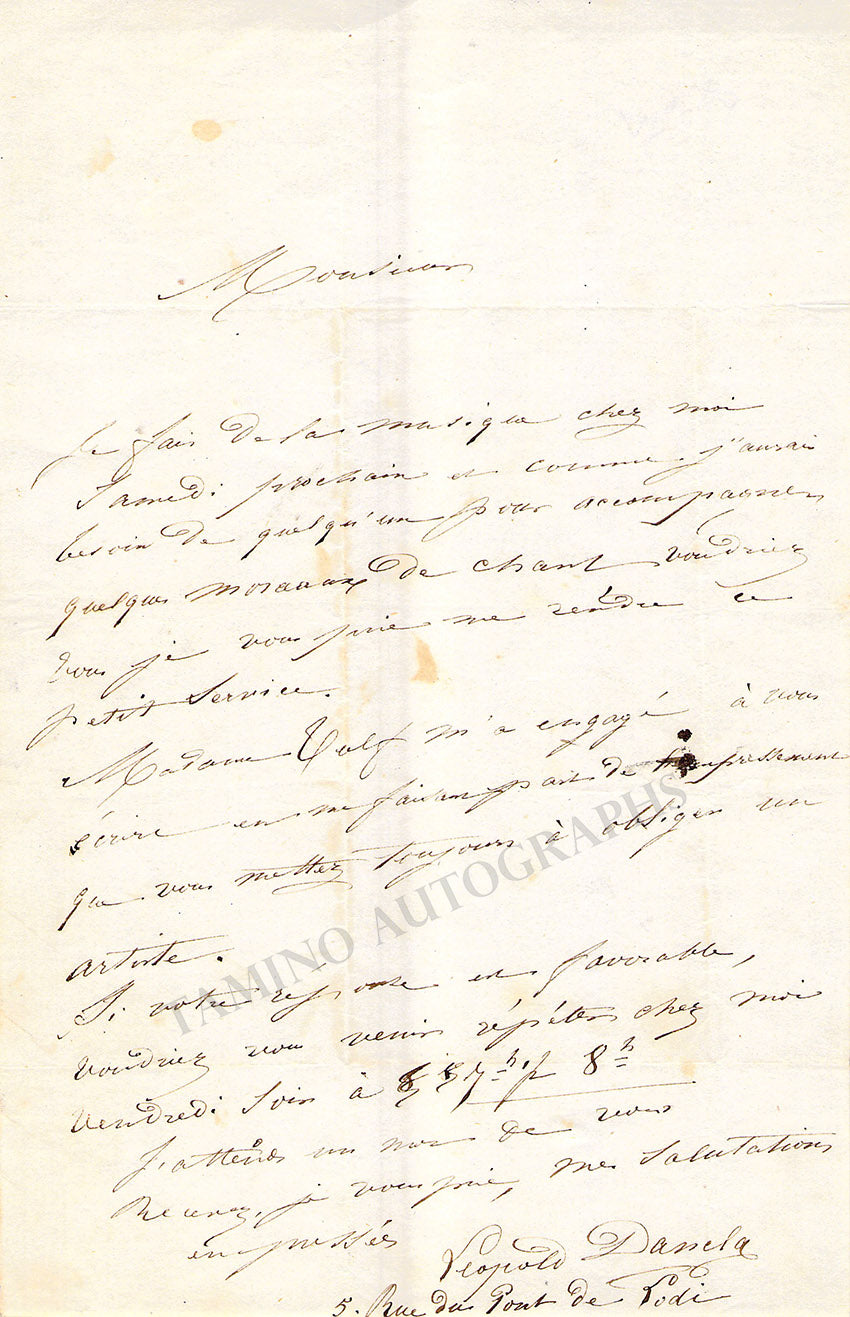 Monsieur
Je fais de la musique chez moi
Samedi prochain et comme j'aurais
besoin de quelqu'un pour accompagner
quelques morceaux de chant voudriez
vous je vous prie me rendre ce
petit service.
Madame m'a engagé à vous
écrire en me faisant part de empressement
que vous mettez toujours à obliger un
artiste.
Si votre réponse est favorable,
voudriez vous venir répéter chez moi
Vendredi soir à 8h
J'attends un mot de vous
Recevez, je vous prie, mes salutations
empressées
Léopold Dancla
5. Rue du Pont de Lodi
TAMINO AUTOGRAPHS